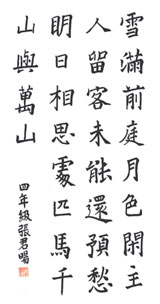 雪滿前庭月色閑主
人留客未能還預愁
明日相思處匹馬千
山與萬山
四年級張君